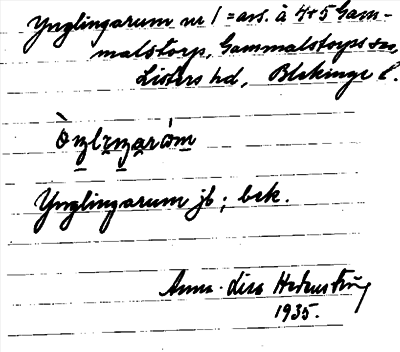 Ynglingarum nr 1 = avs. à 4+5 Gam-
malstorp, Gammalstorps sn,
Listers hd, Blekinge l.
Ynglingarum jb; bek.
Anna-Lisa
1935.